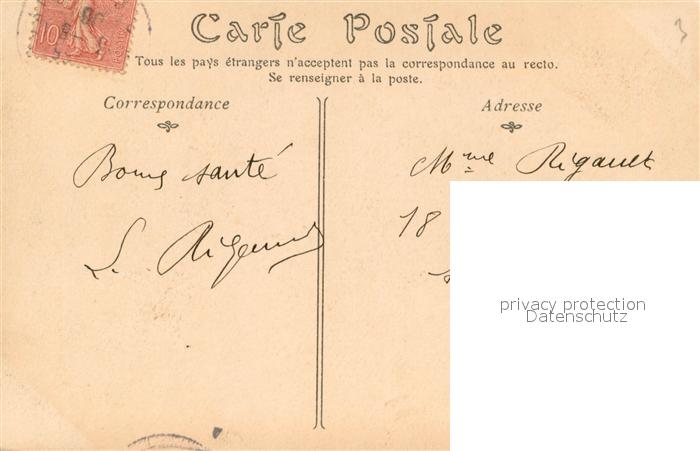 10
3
Carte Postale
Tous les pays étrangers n'acceptent pas la correspondance au recto.
Se renseigner à la poste.
Correspondance
Adresse
Bonne santé
L. Rigault
Mme Rigault
18
privacy protection
Datenschutz